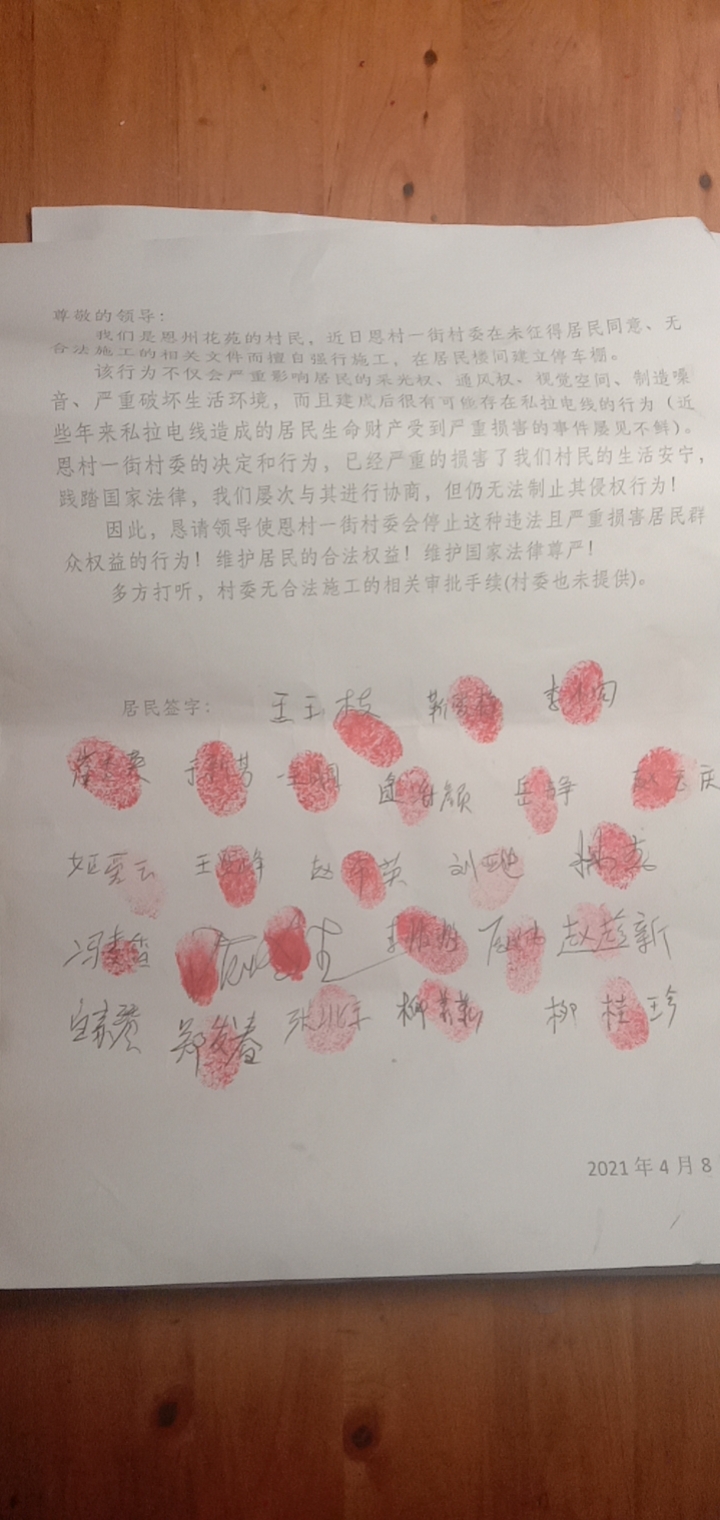 尊敬的领导：
我们是恩州花苑的村民，近日恩村一街村委在未征得居民同意、无
合法施工的相关文件而擅自强行施工，在居民楼间建立停车棚。
该行为不仅会严重影响居民的采光权、通风权、视觉空间、制造噪
音、严重破坏生活环境，而且建成后很有可能存在私拉电线的行为（近
些年来私拉电线造成的居民生命财产受到严重损害的事件屡见不鲜）。
恩村一街村委的决定和行为，已经严重的损害了我们村民的生活安宁，
践踏国家法律，我们屡次与其进行协商，但仍无法制止其侵权行为！
因此，恳请领导使恩村一街村委会停止这种违法且严重损害居民群
众权益的行为！维护居民的合法权益！维护国家法律尊严！
多方打听，村委无合法施工的相关审批手续(村委也未提供)。
居民签字： 王玉枝
岳 峥
姬爱云 赵 英 刘
冯 香 赵 新
郑发春 柳 柳桂珍
2021 年 4 月 8